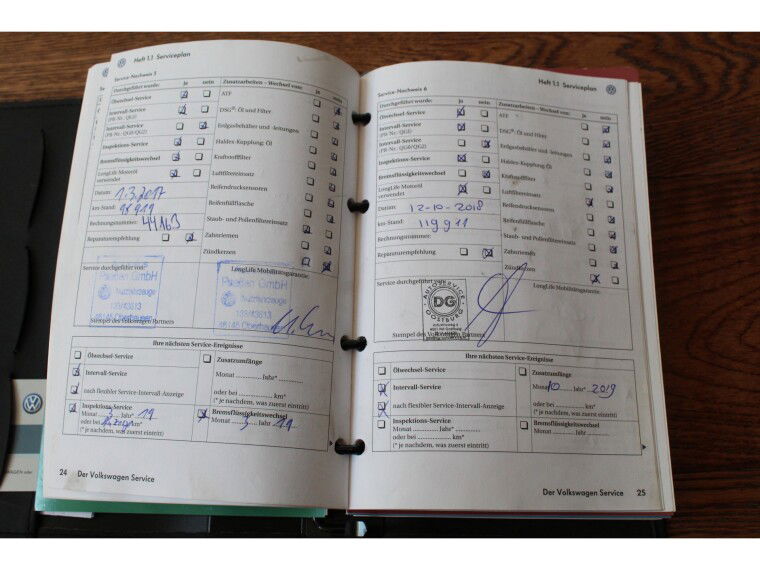 Heft 1.1 Serviceplan
Service-Nachweis 5
Durchgeführt wurde: ja nein
Ölwechsel-Service
Intervall-Service
(PR-Nr. QG1)
Intervall-Service
(PR-Nr. QG0/QG2)
Inspektions-Service
Bremsflüssigkeitswechsel
LongLife Motoröl
verwendet
Datum: 1.3.2017
km-Stand:
Rechnungsnummer: 44163
Reparaturempfehlung
Zusatzarbeiten – Wechsel von: ja nein
ATF
DSG®: Öl und Filter
Erdgasbehälter und -leitungen
Haldex-Kupplung: Öl
Kraftstofffilter
Luftfiltereinsatz
Reifendrucksensoren
Reifenfüllflasche
Staub- und Pollenfiltereinsatz
Zahnriemen
Zündkerzen
Service durchgeführt von:
LongLife Mobilitätsgarantie
GmbH
Nutzfahrzeuge
46145 Oberhausen
GmbH
Nutzfahrzeuge
46145 Oberhausen
Stempel des Volkswagen Partners
Ihre nächsten Service-Ereignisse
Ölwechsel-Service
Intervall-Service
nach flexibler Service-Intervall-Anzeige
Inspektions-Service
Monat 3 Jahr* 19
oder bei km*
(* je nachdem, was zuerst eintritt)
Zusatzumfänge
Monat ............ Jahr* ............
oder bei ............ km*
(* je nachdem, was zuerst eintritt)
Bremsflüssigkeitswechsel
Monat 3 Jahr 19
24 Der Volkswagen Service
Heft 1.1 Serviceplan
Service-Nachweis 6
Durchgeführt wurde: ja nein
Ölwechsel-Service
Intervall-Service
(PR-Nr. QG1)
Intervall-Service
(PR-Nr. QG0/QG2)
Inspektions-Service
Bremsflüssigkeitswechsel
LongLife Motoröl
verwendet
Datum: 12-10-2018
km-Stand: 119911
Rechnungsnummer:
Reparaturempfehlung
Zusatzarbeiten – Wechsel von: ja nein
ATF
DSG®: Öl und Filter
Erdgasbehälter und -leitungen
Haldex-Kupplung: Öl
Kraftstofffilter
Luftfiltereinsatz
Reifendrucksensoren
Reifenfüllflasche
Staub- und Pollenfiltereinsatz
Zahnriemen
Zündkerzen
Service durchgeführt
LongLife Mobilitätsgarantie
AUTOSERVICE
DG
OOSTBURG
Stempel des Volkswagen Partners
Ihre nächsten Service-Ereignisse
Ölwechsel-Service
Intervall-Service
nach flexibler Service-Intervall-Anzeige
Inspektions-Service
Monat ............ Jahr* ............
oder bei ............ km*
(* je nachdem, was zuerst eintritt)
Zusatzumfänge
Monat 10 Jahr* 2019
oder bei ............ km*
(* je nachdem, was zuerst eintritt)
Bremsflüssigkeitswechsel
Monat ............ Jahr ............
Der Volkswagen Service 25